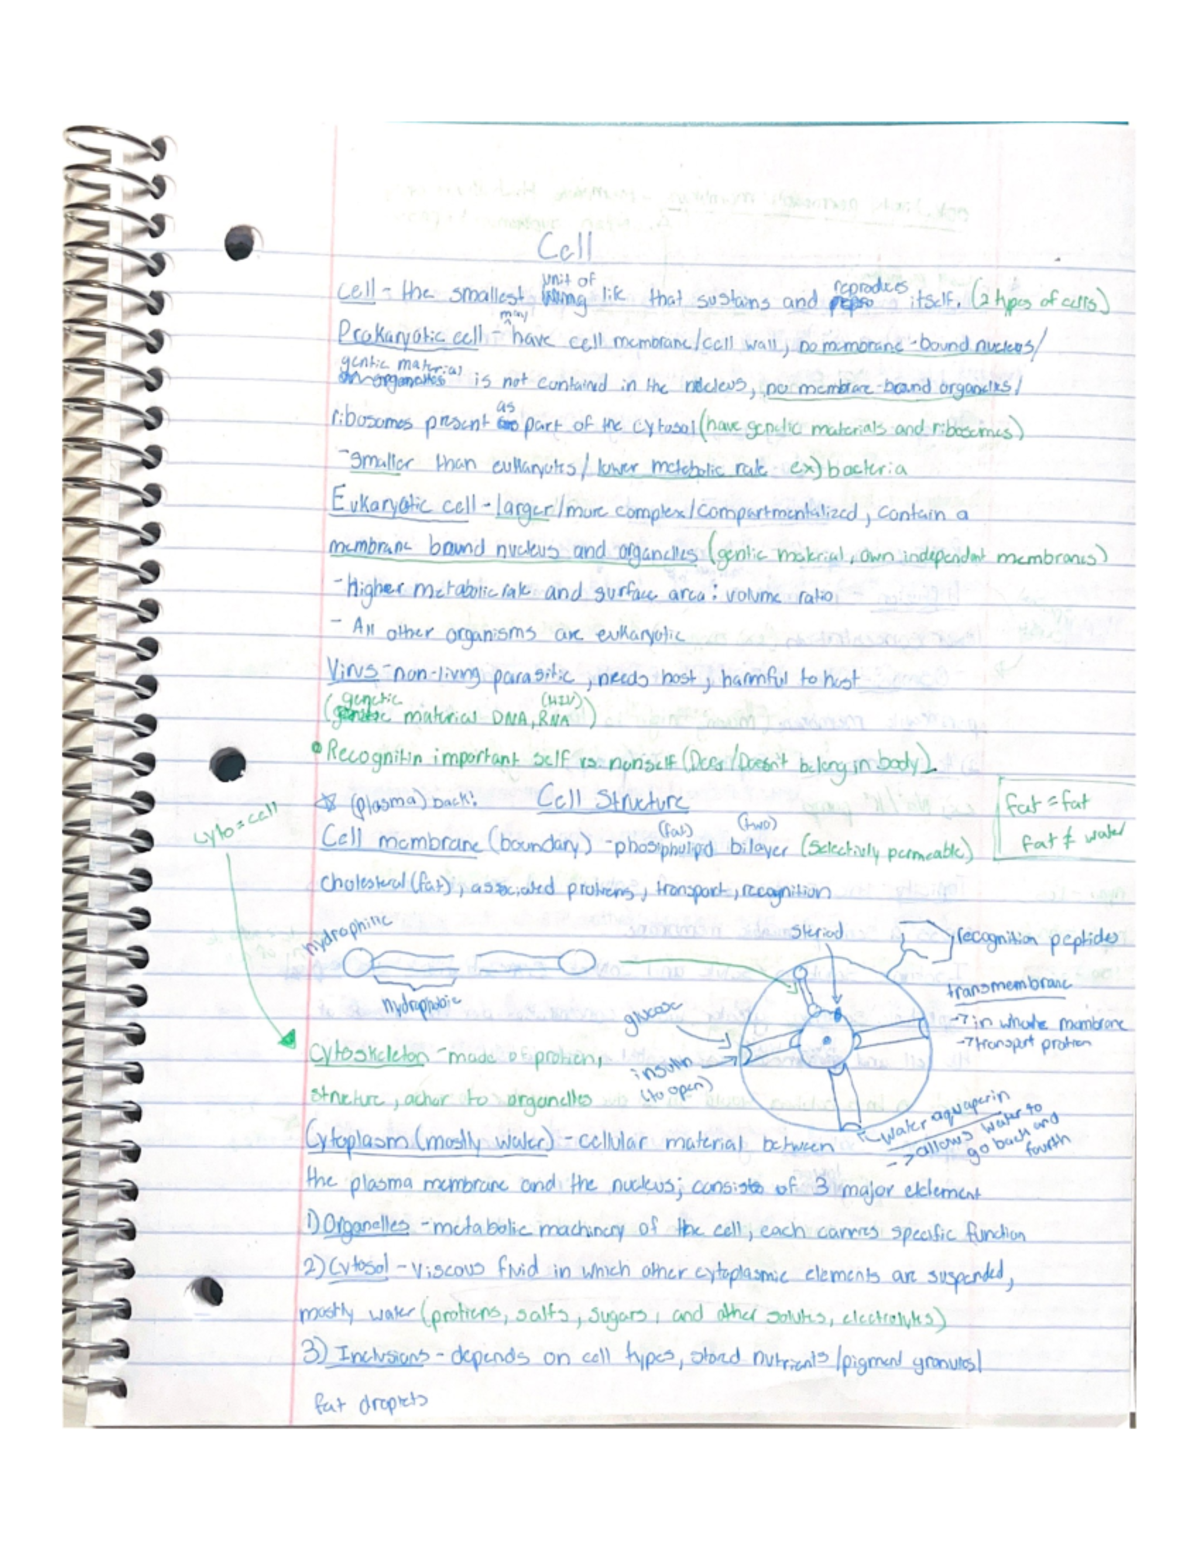 Cell
Cell - the smallest unit of life that sustains and reproduces itself. (2 types of cells)
Prokaryotic cell - may have cell membrane/cell wall, no membrane-bound nucleus/
gentic material is not contained in the nucleus, no membrane-bound organelles/
ribosomes present as part of the cytosol (have genetic materials and ribosomes)
- smaller than eukaryotes/lower metabolic rate ex) bacteria
Eukaryotic cell - larger/more complex/compartmentalized, contain a
membrane bound nucleus and organelles (gentic material, own independent membranes)
- Higher metabolic rate and surface area: volume ratio
- All other organisms are eukaryotic
Virus - non-living parasitic, needs host, harmful to host
(genetic material DNA, RNA (HIV))
• Recognitin important self vs nonself (Does/Doesn't belong in body)
☆ (plasma) back! Cell Structure
fat = fat
fat ≠ water
cyto = cell
Cell membrane (boundary) - phospholipd (fat) bilayer (two) (selectively permeable)
cholesteral (fat), associated protiens, transport, recognition
hydrophilic
hydrophobic
steriod
recognition peptides
transmembrane
→ in whole membrane
→ transport protien
glucose
insulin
(to open)
water aquaperin
-> allows water to
go back and
fourth
Cytoskeleton - made of protien,
structure, achor to organelles
Cytoplasm (mostly water) - cellular material between
the plasma membrane and the nucleus; consists of 3 major elelement
1) Organelles - metabolic machinery of the cell, each carries specific function
2) Cytosol - viscous fluid in which other cytoplasmic elements are suspended,
mostly water (protiens, salts, sugars, and other solutes, electrolytes)
3) Inclusions - depends on cell types, stored nutrients/pigment granules/
fat droplets